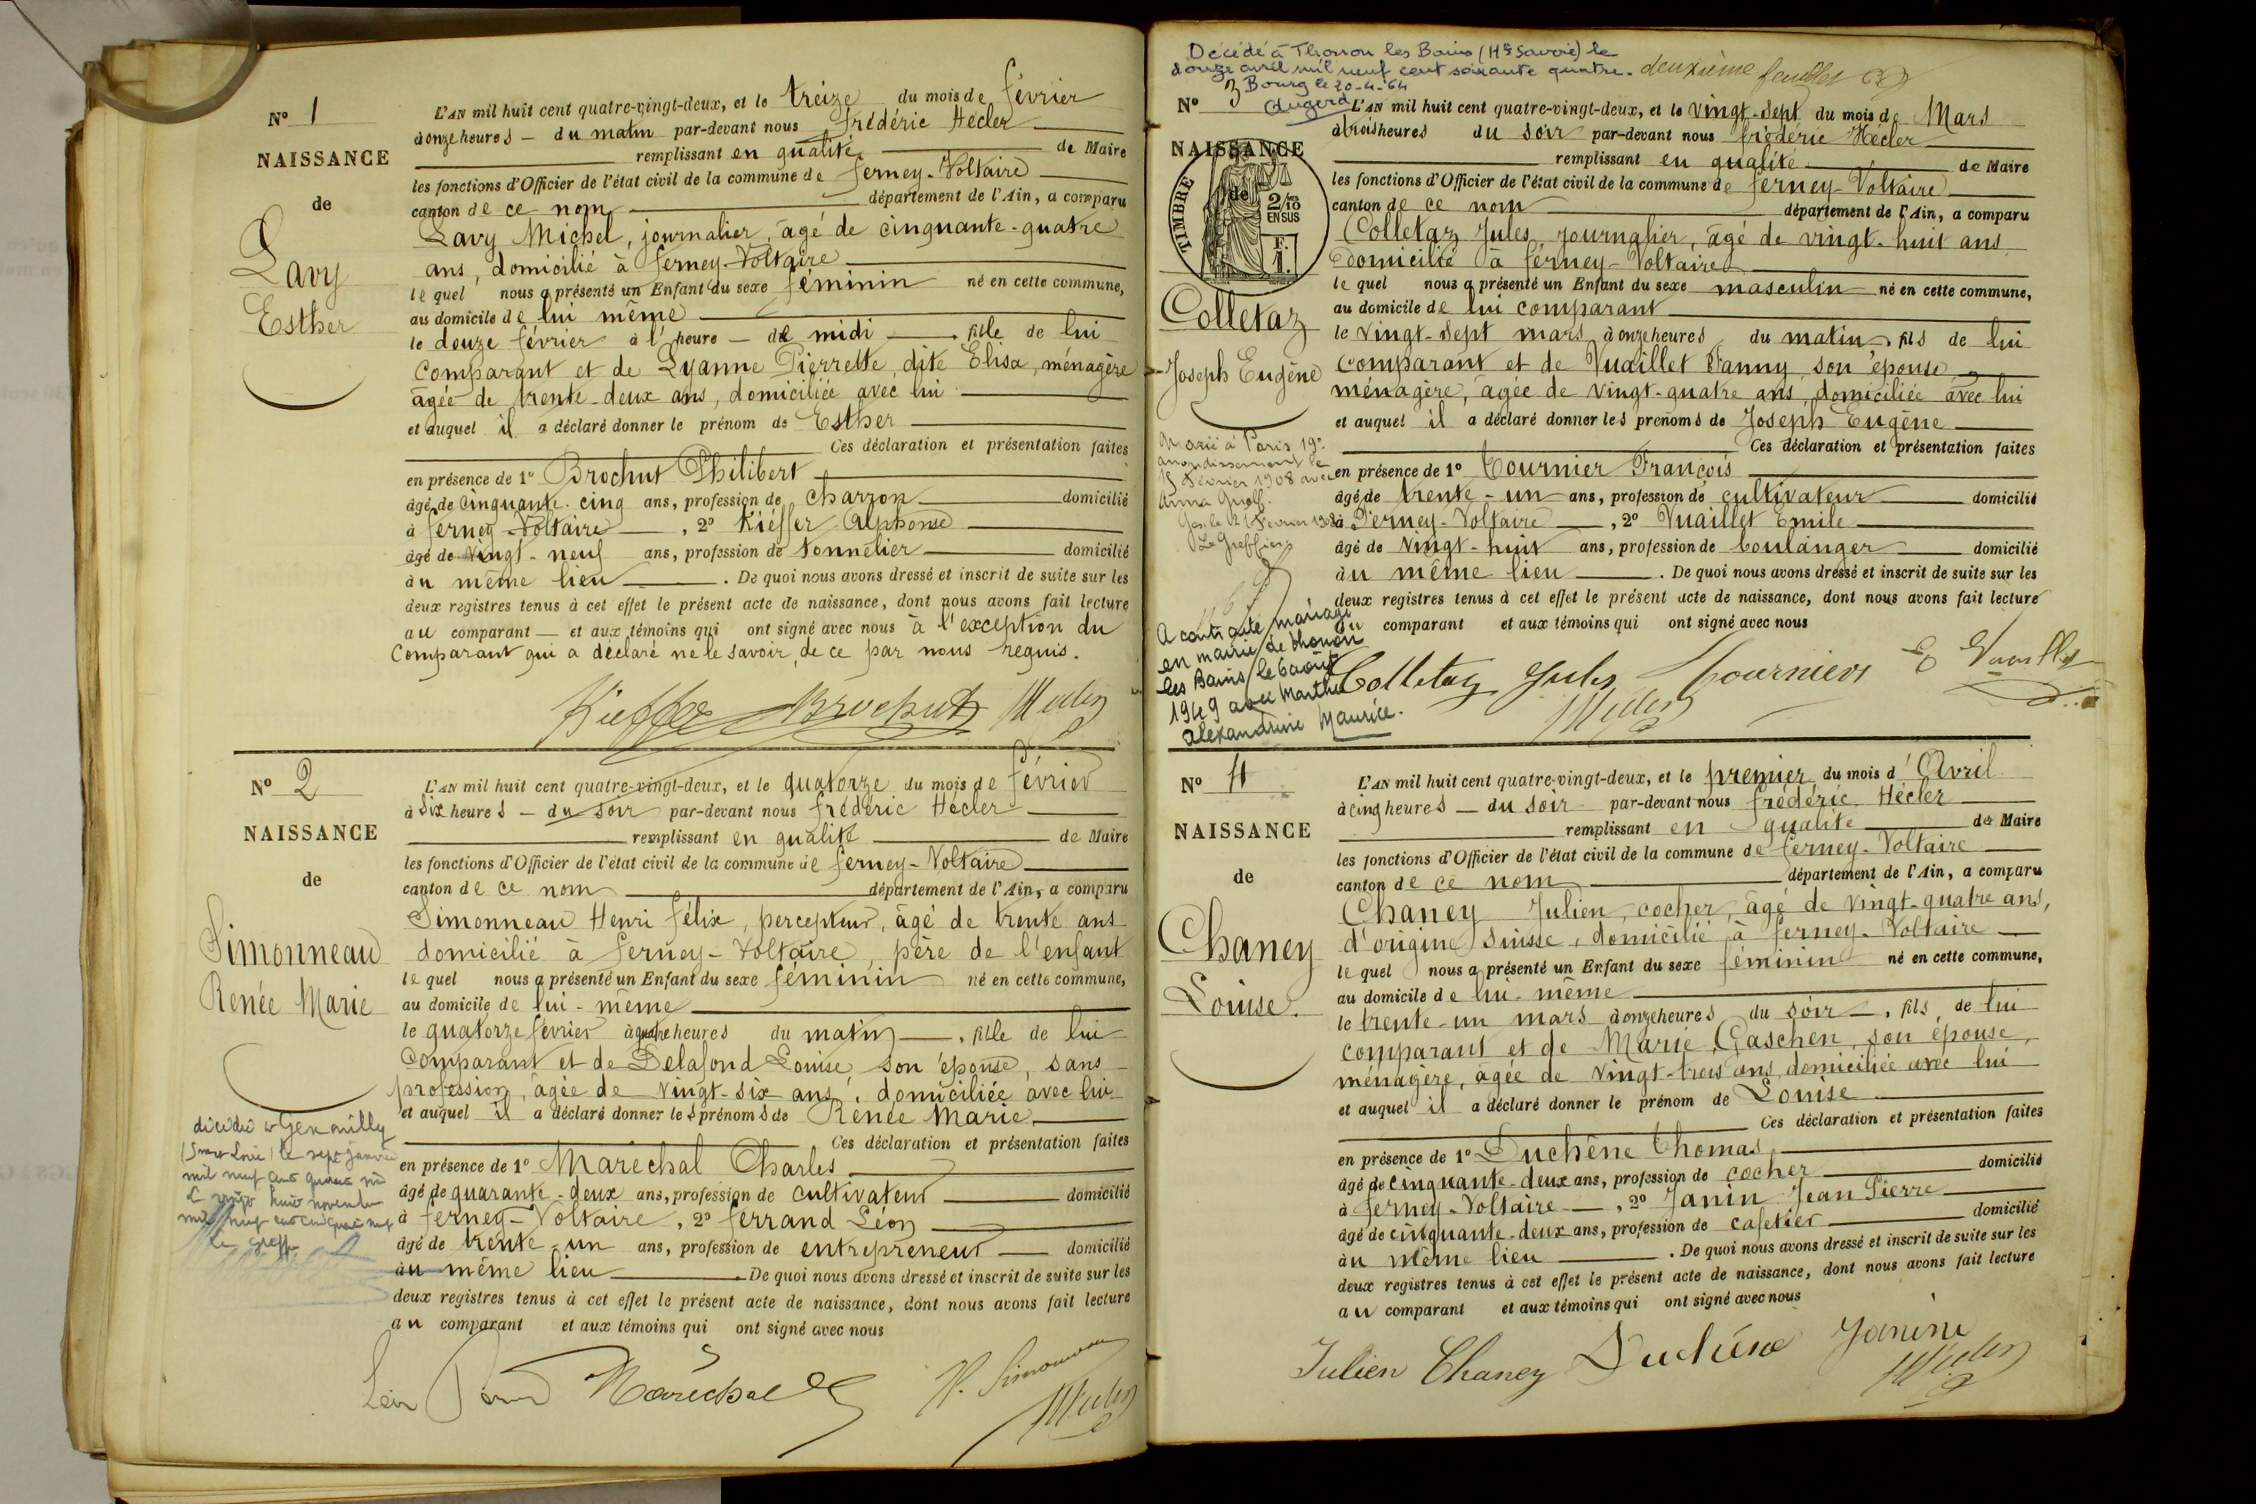 N° 1
NAISSANCE
de
Lavy
Esther
L'AN mil huit cent quatre-vingt-deux, et le treize du mois de février
à onze heures du matin par-devant nous Frédéric Hécler
remplissant en qualité de Maire
les fonctions d'Officier de l'état civil de la commune de Ferney-Voltaire
canton de ce nom département de l'Ain, a comparu
Lavy Michel, journalier, âgé de cinquante-quatre
ans, domicilié à Ferney-Voltaire
lequel nous a présenté un Enfant du sexe féminin né en cette commune,
au domicile de lui même
le douze février à l'heure de midi, fille de lui
comparant et de Lyanne Pierrette, dite Elisa, ménagère
agée de trente-deux ans, domiciliée avec lui
et auquel il a déclaré donner le prénom de Esther
Ces déclaration et présentation faites
en présence de 1° Brochut Philibert
âgé de cinquante-cinq ans, profession de charron domicilié
à Ferney-Voltaire, 2° Kiéffer Alphonse
âgé de vingt-neuf ans, profession de tonnelier domicilié
au même lieu. De quoi nous avons dressé et inscrit de suite sur les
deux registres tenus à cet effet le présent acte de naissance, dont nous avons fait lecture
au comparant et aux témoins qui ont signé avec nous à l'exception du
comparant qui a déclaré ne le savoir, de ce par nous requis.
Kieffer Brochut Hécler
N° 2
NAISSANCE
de
Simonneau
Renée Marie
décédée à Genouilly
(Saone et Loire) le sept janvier
mil neuf cent
vingt huit novembre
mil neuf cent cinquante neuf
Le Greffier
L'AN mil huit cent quatre-vingt-deux, et le quatorze du mois de février
à six heures du soir par-devant nous Frédéric Hécler
remplissant en qualité de Maire
les fonctions d'Officier de l'état civil de la commune de Ferney-Voltaire
canton de ce nom département de l'Ain, a comparu
Simonneau Henri Félix, percepteur, âgé de trente ans
domicilié à Ferney-Voltaire, père de l'enfant
lequel nous a présenté un Enfant du sexe féminin né en cette commune,
au domicile de lui-même
le quatorze février à quatre heures du matin, fille de lui
comparant et de Delafond Louise son épouse, sans
profession, âgée de vingt-six ans, domiciliée avec lui
et auquel il a déclaré donner les prénoms de Renée Marie
Ces déclaration et présentation faites
en présence de 1° Maréchal Charles
âgé de quarante-deux ans, profession de cultivateur domicilié
à Ferney-Voltaire, 2° Ferrand Léon
âgé de trente-un ans, profession de entrepreneur domicilié
au même lieu. De quoi nous avons dressé et inscrit de suite sur les
deux registres tenus à cet effet le présent acte de naissance, dont nous avons fait lecture
au comparant et aux témoins qui ont signé avec nous
Léon Maréchal H. Simonneau Hécler
Décédé à Thonon les Bains (Hte Savoie) le
douze avril mil neuf cent soixante quatre.
Bourg le 20-4-64
deuxième feuillet
N° 3
NAISSANCE
de
TIMBRE
2/10
EN SUS
F.
1.
Colletaz
Joseph Eugène
Marié à Paris 19e
arrondissement le
15 Février 1908 avec
Anna
Gex, le 21 Février 1908
Le Greffier
A contracté mariage
en mairie de Thonon
les Bains le 6 août
1949 avec Marthe
Alexandrine Maurice.
L'AN mil huit cent quatre-vingt-deux, et le vingt-sept du mois de Mars
à trois heures du soir par-devant nous Frédéric Hécler
remplissant en qualité de Maire
les fonctions d'Officier de l'état civil de la commune de Ferney-Voltaire
canton de ce nom département de l'Ain, a comparu
Colletaz Jules, journalier, âgé de vingt-huit ans
domicilié à Ferney-Voltaire
lequel nous a présenté un Enfant du sexe masculin né en cette commune,
au domicile de lui comparant
le vingt-sept mars à onze heures du matin, fils de lui
comparant et de Vuaillet Fanny son épouse
ménagère, âgée de vingt-quatre ans, domiciliée avec lui
et auquel il a déclaré donner les prénoms de Joseph Eugène
Ces déclaration et présentation faites
en présence de 1° Tournier François
âgé de trente-un ans, profession de cultivateur domicilié
à Ferney-Voltaire, 2° Vuaillet Emile
âgé de vingt-huit ans, profession de boulanger domicilié
au même lieu. De quoi nous avons dressé et inscrit de suite sur les
deux registres tenus à cet effet le présent acte de naissance, dont nous avons fait lecture
au comparant et aux témoins qui ont signé avec nous
Colletaz Jules Tournier E Vuaillet
Hécler
N° 4
NAISSANCE
de
Chaney
Louise.
L'AN mil huit cent quatre-vingt-deux, et le premier du mois d'Avril
à cinq heures du soir par-devant nous Frédéric Hécler
remplissant en qualité de Maire
les fonctions d'Officier de l'état civil de la commune de Ferney-Voltaire
canton de ce nom département de l'Ain, a comparu
Chaney Julien, cocher, âgé de vingt-quatre ans,
d'origine Suisse, domicilié à Ferney-Voltaire
lequel nous a présenté un Enfant du sexe féminin né en cette commune,
au domicile de lui-même
le trente-un mars à onze heures du soir, fils de lui
comparant et de Marie Gaschen, son épouse,
ménagère, âgée de vingt-trois ans, domiciliée avec lui
et auquel il a déclaré donner le prénom de Louise
Ces déclaration et présentation faites
en présence de 1° Duchêne Thomas
âgé de cinquante-deux ans, profession de cocher domicilié
à Ferney-Voltaire, 2° Janin Jean Pierre
âgé de cinquante-deux ans, profession de cafetier domicilié
au même lieu. De quoi nous avons dressé et inscrit de suite sur les
deux registres tenus à cet effet le présent acte de naissance, dont nous avons fait lecture
au comparant et aux témoins qui ont signé avec nous
Julien Chaney Duchêne Janin
Hécler